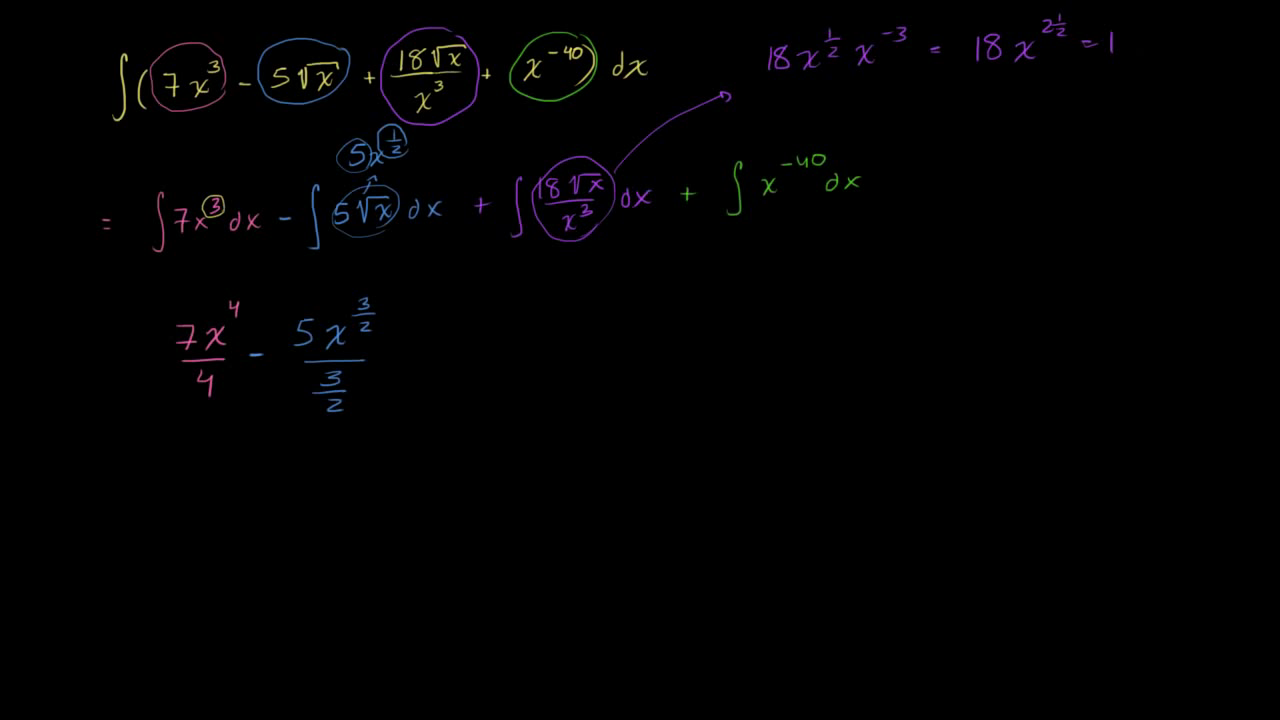 ∫(7x³ - 5√x + 18√x/x³ + x⁻⁴⁰) dx
18x^(1/2) x⁻³ = 18x^(2 1/2) = 1
5x^(1/2)
= ∫7x³dx - ∫5√x dx + ∫18√x/x³ dx + ∫x⁻⁴⁰dx
7x⁴/4 - 5x^(3/2)/(3/2)